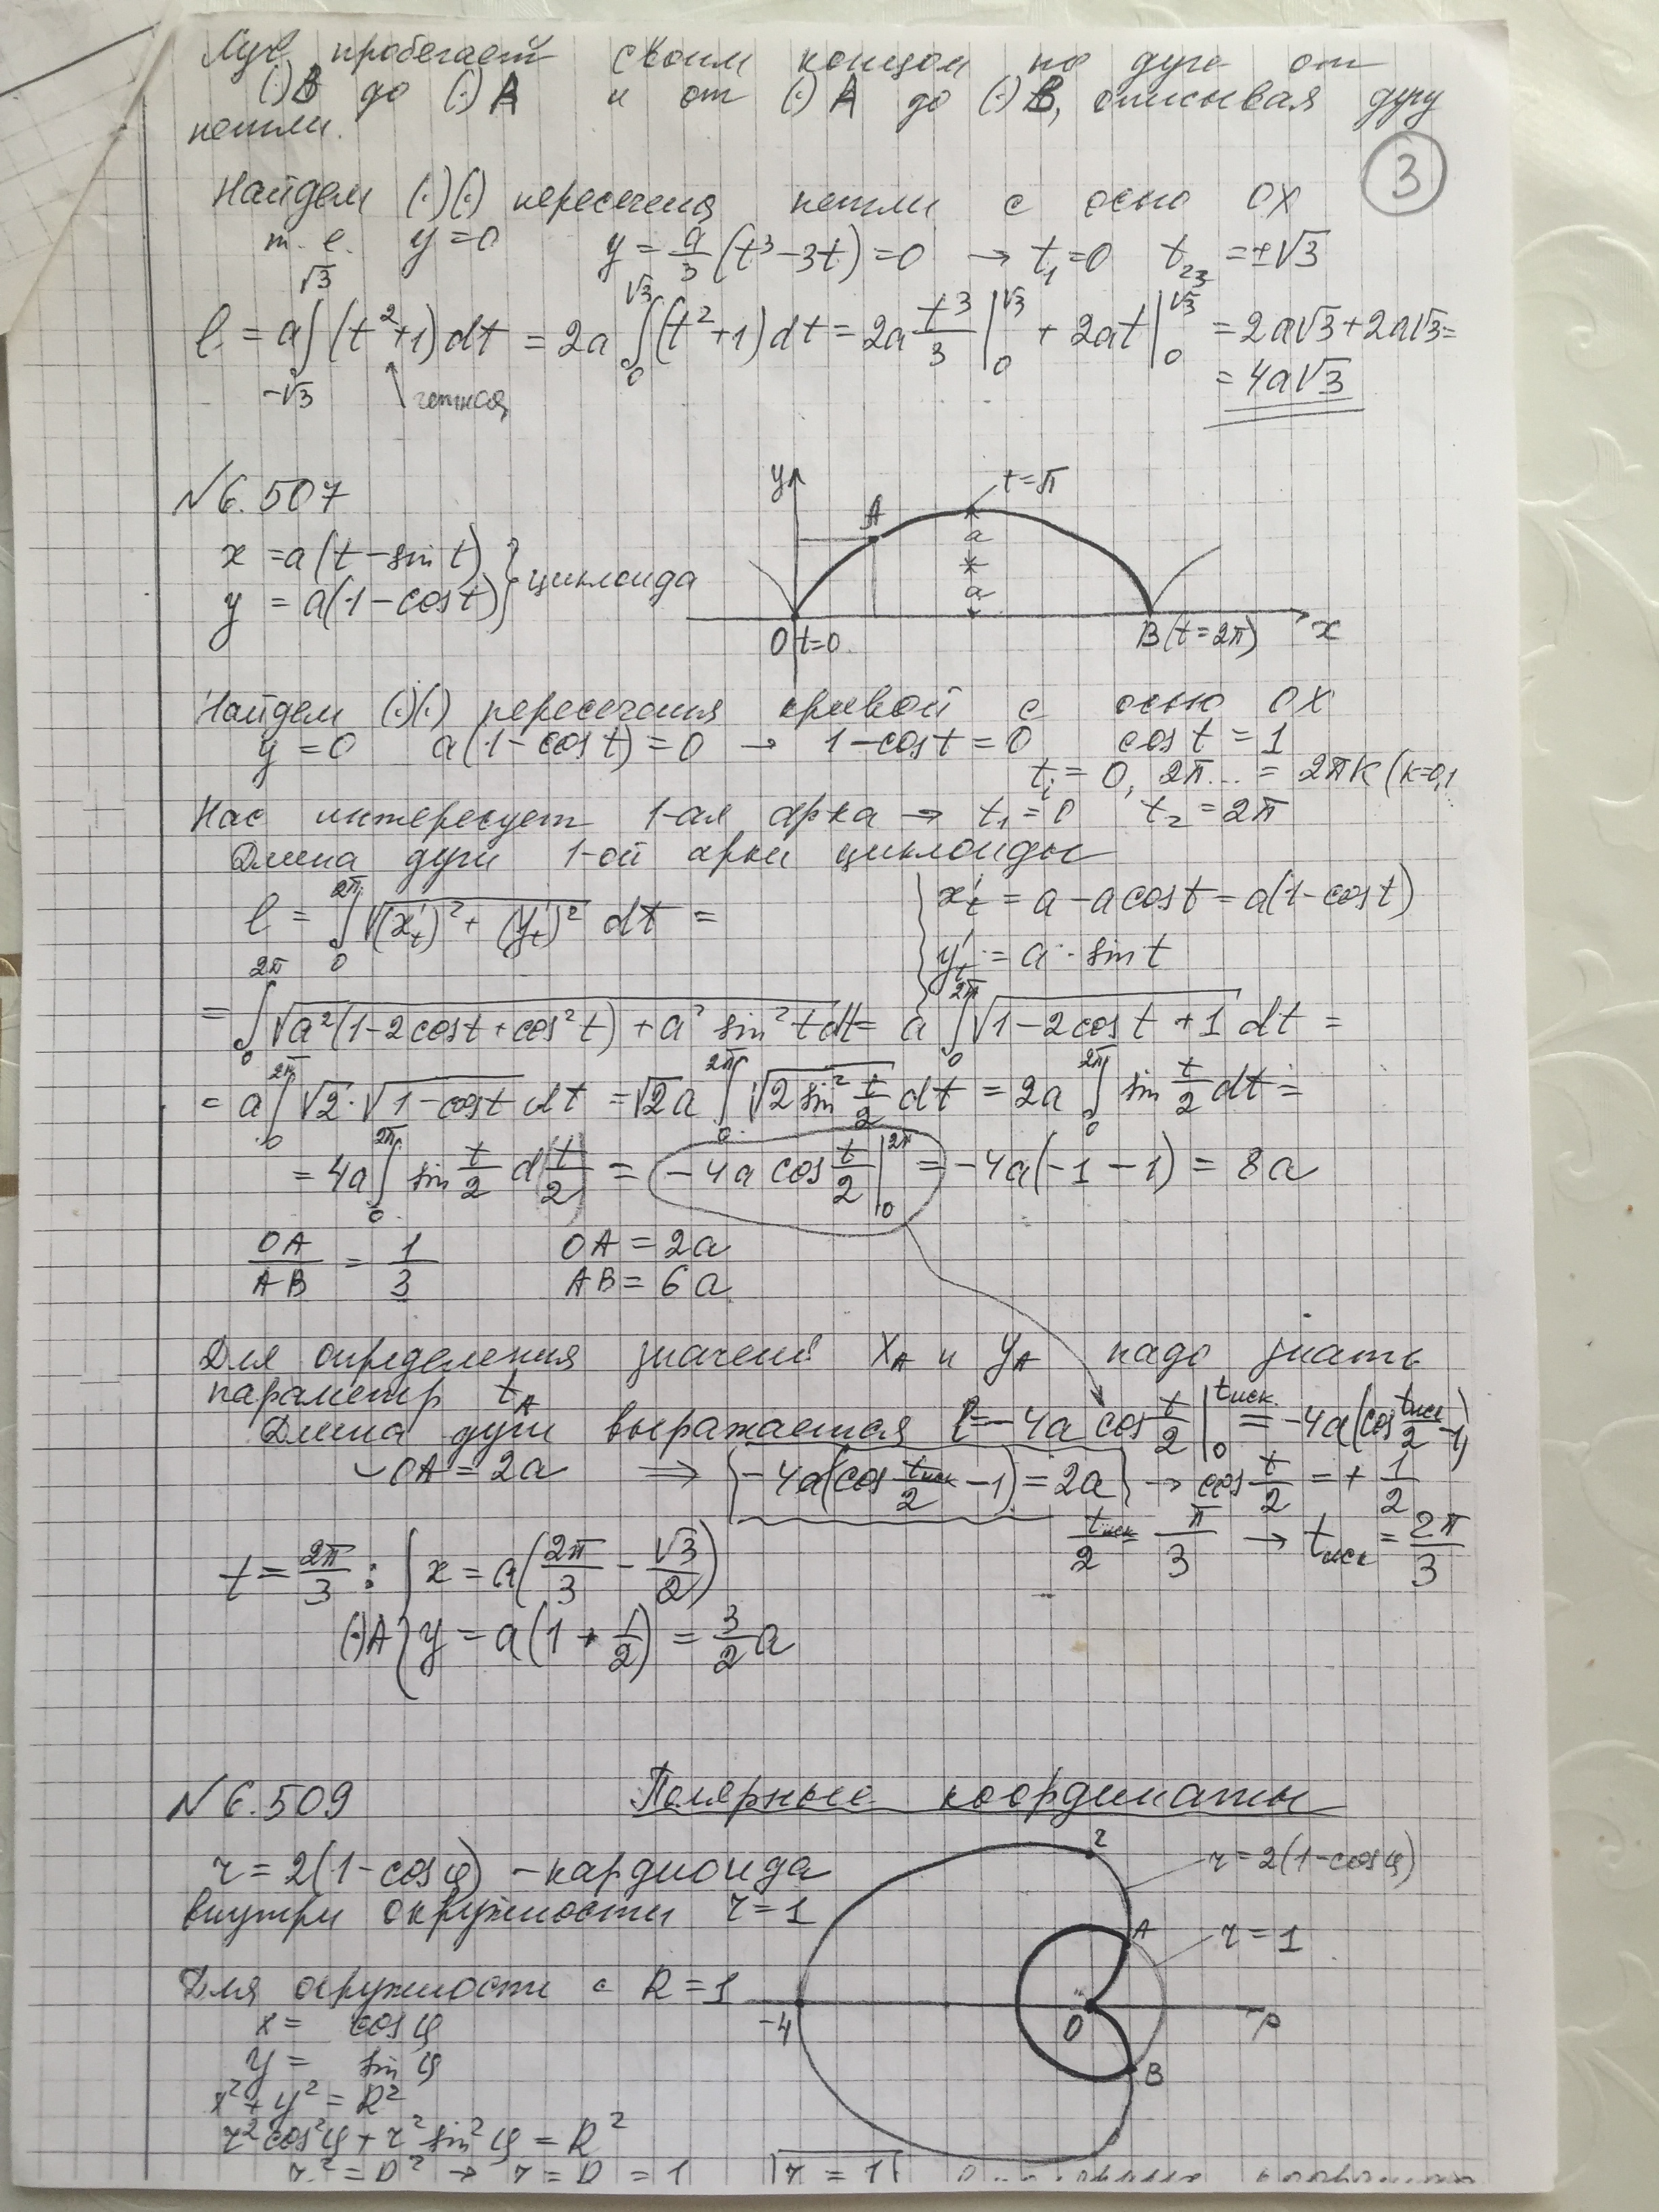 Луч пробегает своим концом по дуге от
(·)B до (·)A и от (·)A до (·)B, описывая дугу
петли.
3
Найдем (·)(·) пересечения петли с осью OX
т. е. y=0 y = a/3 (t³-3t)=0 → t₁=0 t₂₃ = ±√3
ℓ = a∫_{-√3}^{√3} (t²+1)dt = 2a ∫_0^{√3} (t²+1)dt = 2a t³/3 |_0^{√3} + 2at |_0^{√3} = 2a√3+2a√3=
= 4a√3
четная
N6.507
x = a(t-sin t)
y = a(1-cos t) } циклоида
y t=π
A
a
a
O t=0 B(t=2π) x
Найдем (·)(·) пересечения кривой с осью OX
y=0 a(1-cos t)=0 → 1-cos t=0 cos t=1
t_i = 0, 2π... = 2πk (k=0,1
Нас интересует 1-ая арка → t₁=0 t₂=2π
Длина дуги 1-ой арки циклоиды
ℓ = ∫_0^{2π} √((x'_t)²+(y'_t)²) dt =
x'_t = a-a cos t = a(1-cos t)
y'_t = a·sin t
= ∫_0^{2π} √(a²(1-2cos t+cos²t)+a² sin²t) dt = a ∫_0^{2π} √(1-2cos t+1) dt =
= a∫_0^{2π} √2·√(1-cos t) dt = √2 a ∫_0^{2π} √(2sin² t/2) dt = 2a ∫_0^{2π} sin t/2 dt =
= 4a∫_0^{2π} sin t/2 d(t/2) = -4a cos t/2 |_0^{2π} = -4a(-1-1) = 8a
OA/AB = 1/3 OA = 2a
AB = 6a
Для определения значений X_A и Y_A надо знать
параметр t_A
Длина дуги выражается ℓ=-4a cos t/2 |_0^{tиск.} = -4a(cos tиск/2 -1)
◡OA = 2a ⇒ {-4a(cos tиск/2 -1)=2a} → cos t/2 = + 1/2
tиск/2 = π/3 → tиск = 2π/3
t = 2π/3 : { x = a(2π/3 - √3/2)
(·)A { y = a(1+1/2) = 3/2 a
N6.509 Полярные координаты
r=2(1-cosφ) - кардиоида
внутри окружности r=1
2
r=2(1-cosφ)
A
r=1
-4 O ρ
B
Для окружности с R=1
x= cosφ
y= sinφ
x²+y²=R²
r²cos²φ+r²sin²φ=R²
r²=R² → r=R=1 r=1